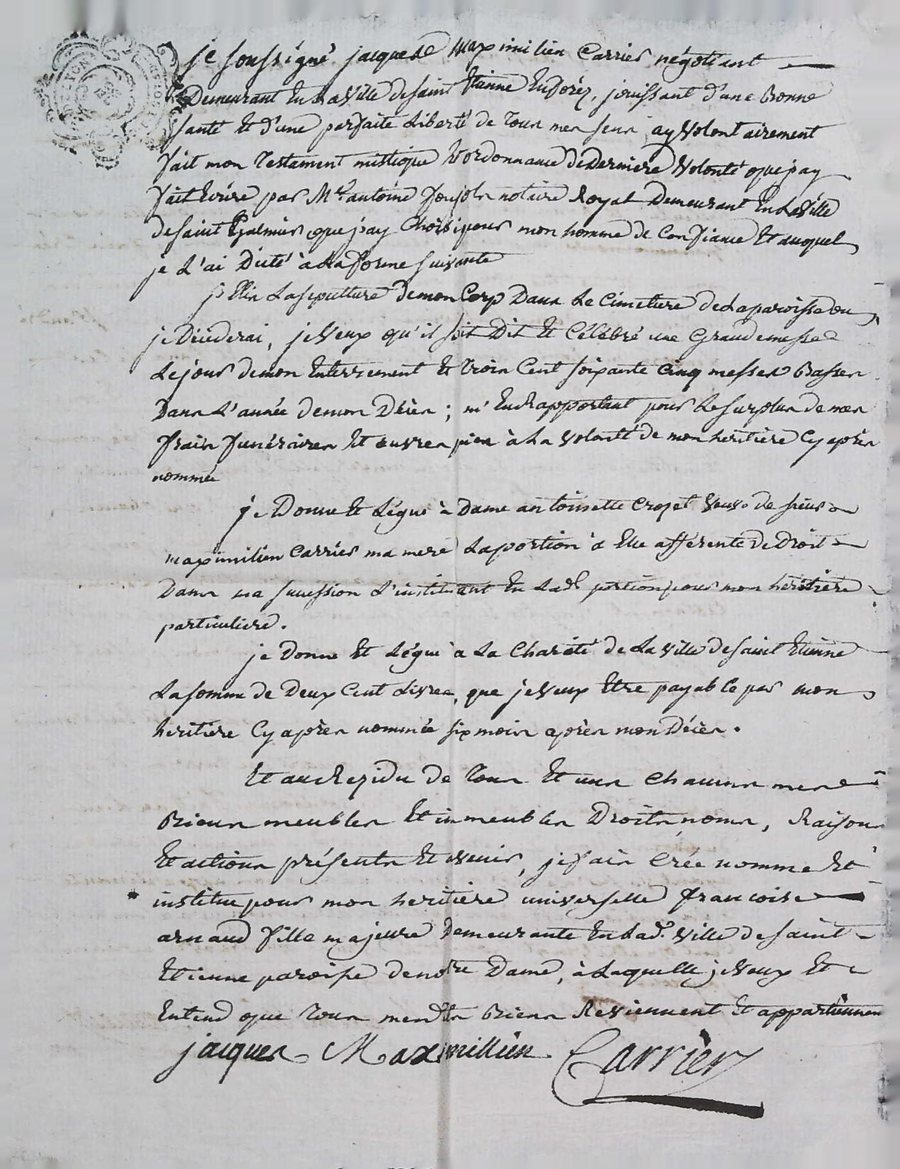 LYON
je soussigné jacques Maximilien Carrier négotiant
Demeurant En La Ville de saint Etienne En forez, jouissant d'une Bonne
santé Et d'une parfaite Liberté de Tous mes sens, ay volontairement
fait mon Testament mistique Et ordonnance de Derniere Volonté que j'ay
fait Ecrire par Mre antoine notaire Royal Demeurant En la Ville
de saint Galmier que j'ay Choisi pour mon homme de Confiance Et auquel
je L'ai Dicté à La forme suivante
j'Elis La sepultture de mon Corp Dans Le Cimetiere de La paroisse ou
je Décéderai, je Veux qu'il soit Dit Et Célébré une Grande messe
Le jour de mon Enterrement Et Trois Cent soixante Cinq messes Basses
Dans L'année de mon Décès ; m'En Rapportant pour Le surplus de mes
frais funéraires Et œuvres pies à La volonté de mon heritière Cy après
nommée
je Donne Et Légue à Dame antoinette Crozet Veuve de sieur
maximilien Carrier ma mere La portion à Elle afférente de Droit
Dans ma succession L'instituant En Lad. portion pour mon heritiere
particuliere.
je Donne Et Légue à La Charité de La Ville de saint Etienne
La somme de Deux Cent Livres, que je Veux Etre payable par mon
heritière Cy après nommée six mois après mon Décès.
Et au Rezidu de Tous Et uns Chacuns mes
Biens meubles Et immeubles Droits, noms, Raisons
Et actions présents Et avenir, je fais Crée nomme Et
institue pour mon heritière universelle francoise
arnaud fille majeure Demeurante En Lad. Ville de saint
Etienne paroisse de notre Dame, à Laquelle je Veux Et
Entend que Tous mesdts Biens Reviennent Et appartiennen
jacques Maximillien Carrier